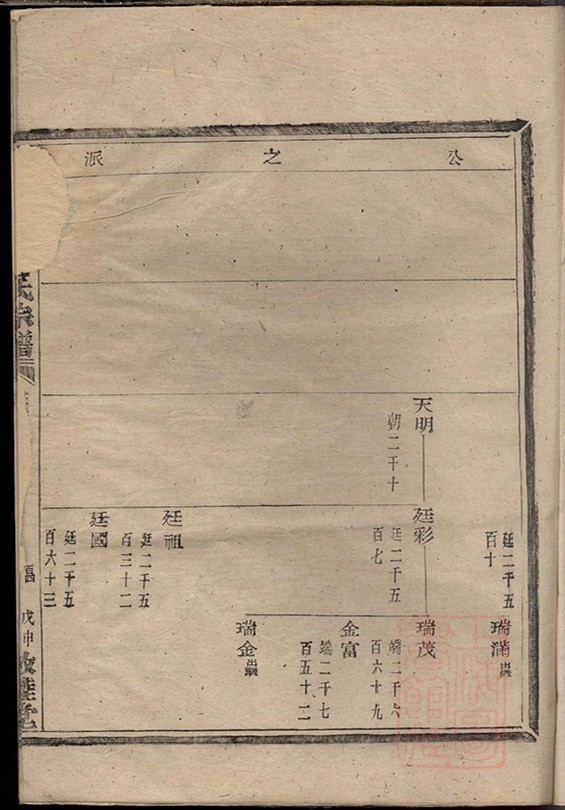 公之派
廷二千五
百十
瑞滿
天明
朝二千十
廷彩
廷二千五
百七
瑞茂
瑞二千六
百六十九
金富
瑞二千七
百五十二
瑞金
廷祖
廷二千五
百三十二
廷國
廷二千五
百六十三
氏宗譜
戊申